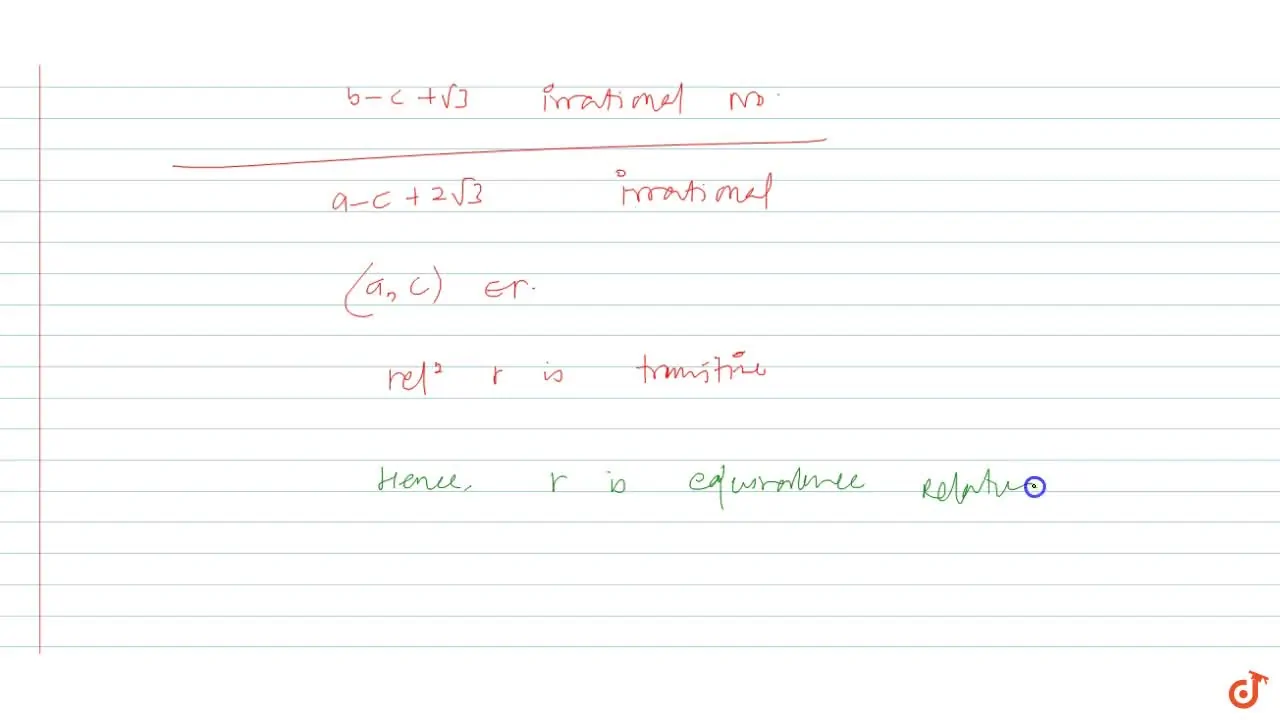 b-c+√3 irrational No.
a-c+2√3 irrational
(a, c) ∈ r.
relⁿ r is transitive
Hence, r is equivalence relation